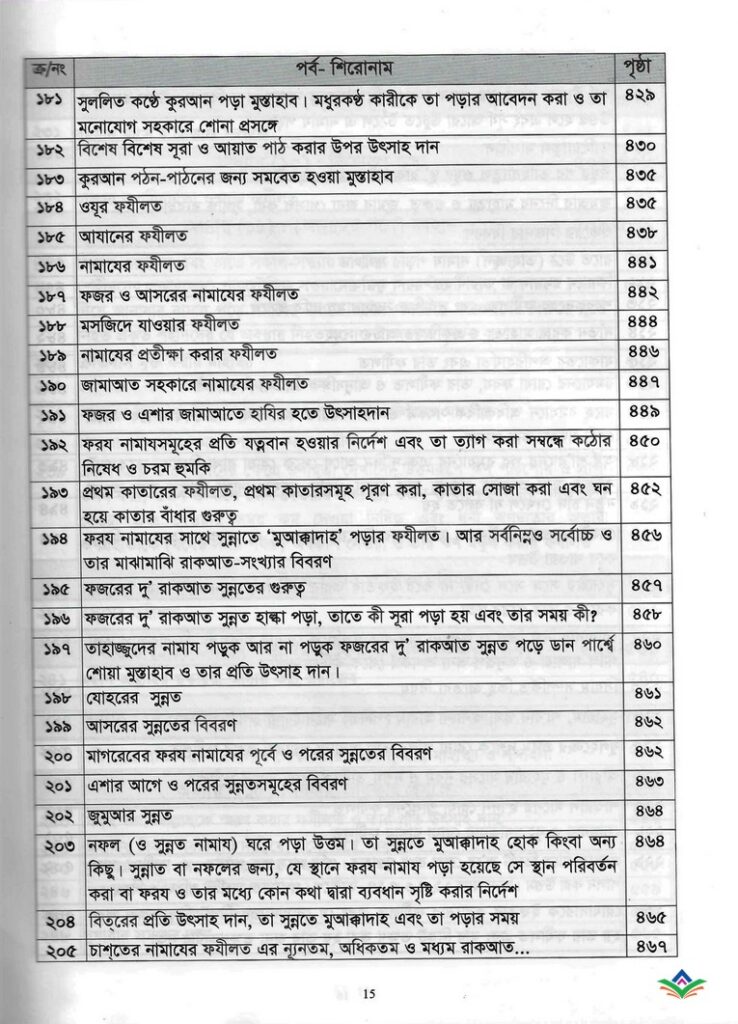 ক্র/নং পর্ব- শিরোনাম পৃষ্ঠা
১৮১ সুললিত কণ্ঠে কুরআন পড়া মুস্তাহাব। মধুরকণ্ঠ কারীকে তা পড়ার আবেদন করা ও তা ৪২৯
মনোযোগ সহকারে শোনা প্রসঙ্গে
১৮২ বিশেষ বিশেষ সূরা ও আয়াত পাঠ করার উপর উৎসাহ দান ৪৩০
১৮৩ কুরআন পঠন-পাঠনের জন্য সমবেত হওয়া মুস্তাহাব ৪৩৫
১৮৪ ওযূর ফযীলত ৪৩৫
১৮৫ আযানের ফযীলত ৪৩৮
১৮৬ নামাযের ফযীলত ৪৪১
১৮৭ ফজর ও আসরের নামাযের ফযীলত ৪৪২
১৮৮ মসজিদে যাওয়ার ফযীলত ৪৪৪
১৮৯ নামাযের প্রতীক্ষা করার ফযীলত ৪৪৬
১৯০ জামাআত সহকারে নামাযের ফযীলত ৪৪৭
১৯১ ফজর ও এশার জামাআতে হাযির হতে উৎসাহদান ৪৪৯
১৯২ ফরয নামাযসমূহের প্রতি যত্নবান হওয়ার নির্দেশ এবং তা ত্যাগ করা সম্বন্ধে কঠোর ৪৫০
নিষেধ ও চরম হুমকি
১৯৩ প্রথম কাতারের ফযীলত, প্রথম কাতারসমূহ পূরণ করা, কাতার সোজা করা এবং ঘন ৪৫২
হয়ে কাতার বাঁধার গুরুত্ব
১৯৪ ফরয নামাযের সাথে সুন্নাতে ‘মুআক্কাদাহ’ পড়ার ফযীলত। আর সর্বনিম্নও সর্বোচ্চ ও ৪৫৬
তার মাঝামাঝি রাকআত-সংখ্যার বিবরণ
১৯৫ ফজরের দু’ রাকআত সুন্নতের গুরুত্ব ৪৫৭
১৯৬ ফজরের দু’ রাকআত সুন্নত হাল্কা পড়া, তাতে কী সূরা পড়া হয় এবং তার সময় কী? ৪৫৮
১৯৭ তাহাজ্জুদের নামায পড়ুক আর না পড়ুক ফজরের দু’ রাকআত সুন্নত পড়ে ডান পার্শ্বে ৪৬০
শোয়া মুস্তাহাব ও তার প্রতি উৎসাহ দান।
১৯৮ যোহরের সুন্নত ৪৬১
১৯৯ আসরের সুন্নতের বিবরণ ৪৬২
২০০ মাগরেবের ফরয নামাযের পূর্বে ও পরের সুন্নতের বিবরণ ৪৬২
২০১ এশার আগে ও পরের সুন্নতসমূহের বিবরণ ৪৬৩
২০২ জুমুআর সুন্নত ৪৬৪
২০৩ নফল (ও সুন্নত নামায) ঘরে পড়া উত্তম। তা সুন্নতে মুআক্কাদাহ হোক কিংবা অন্য ৪৬৪
কিছু। সুন্নাত বা নফলের জন্য, যে স্থানে ফরয নামায পড়া হয়েছে সে স্থান পরিবর্তন
করা বা ফরয ও তার মধ্যে কোন কথা দ্বারা ব্যবধান সৃষ্টি করার নির্দেশ
২০৪ বিত্‌রের প্রতি উৎসাহ দান, তা সুন্নতে মুআক্কাদাহ এবং তা পড়ার সময় ৪৬৫
২০৫ চাশ্‌তের নামাযের ফযীলত এর ন্যূনতম, অধিকতম ও মধ্যম রাকআত... ৪৬৭
15